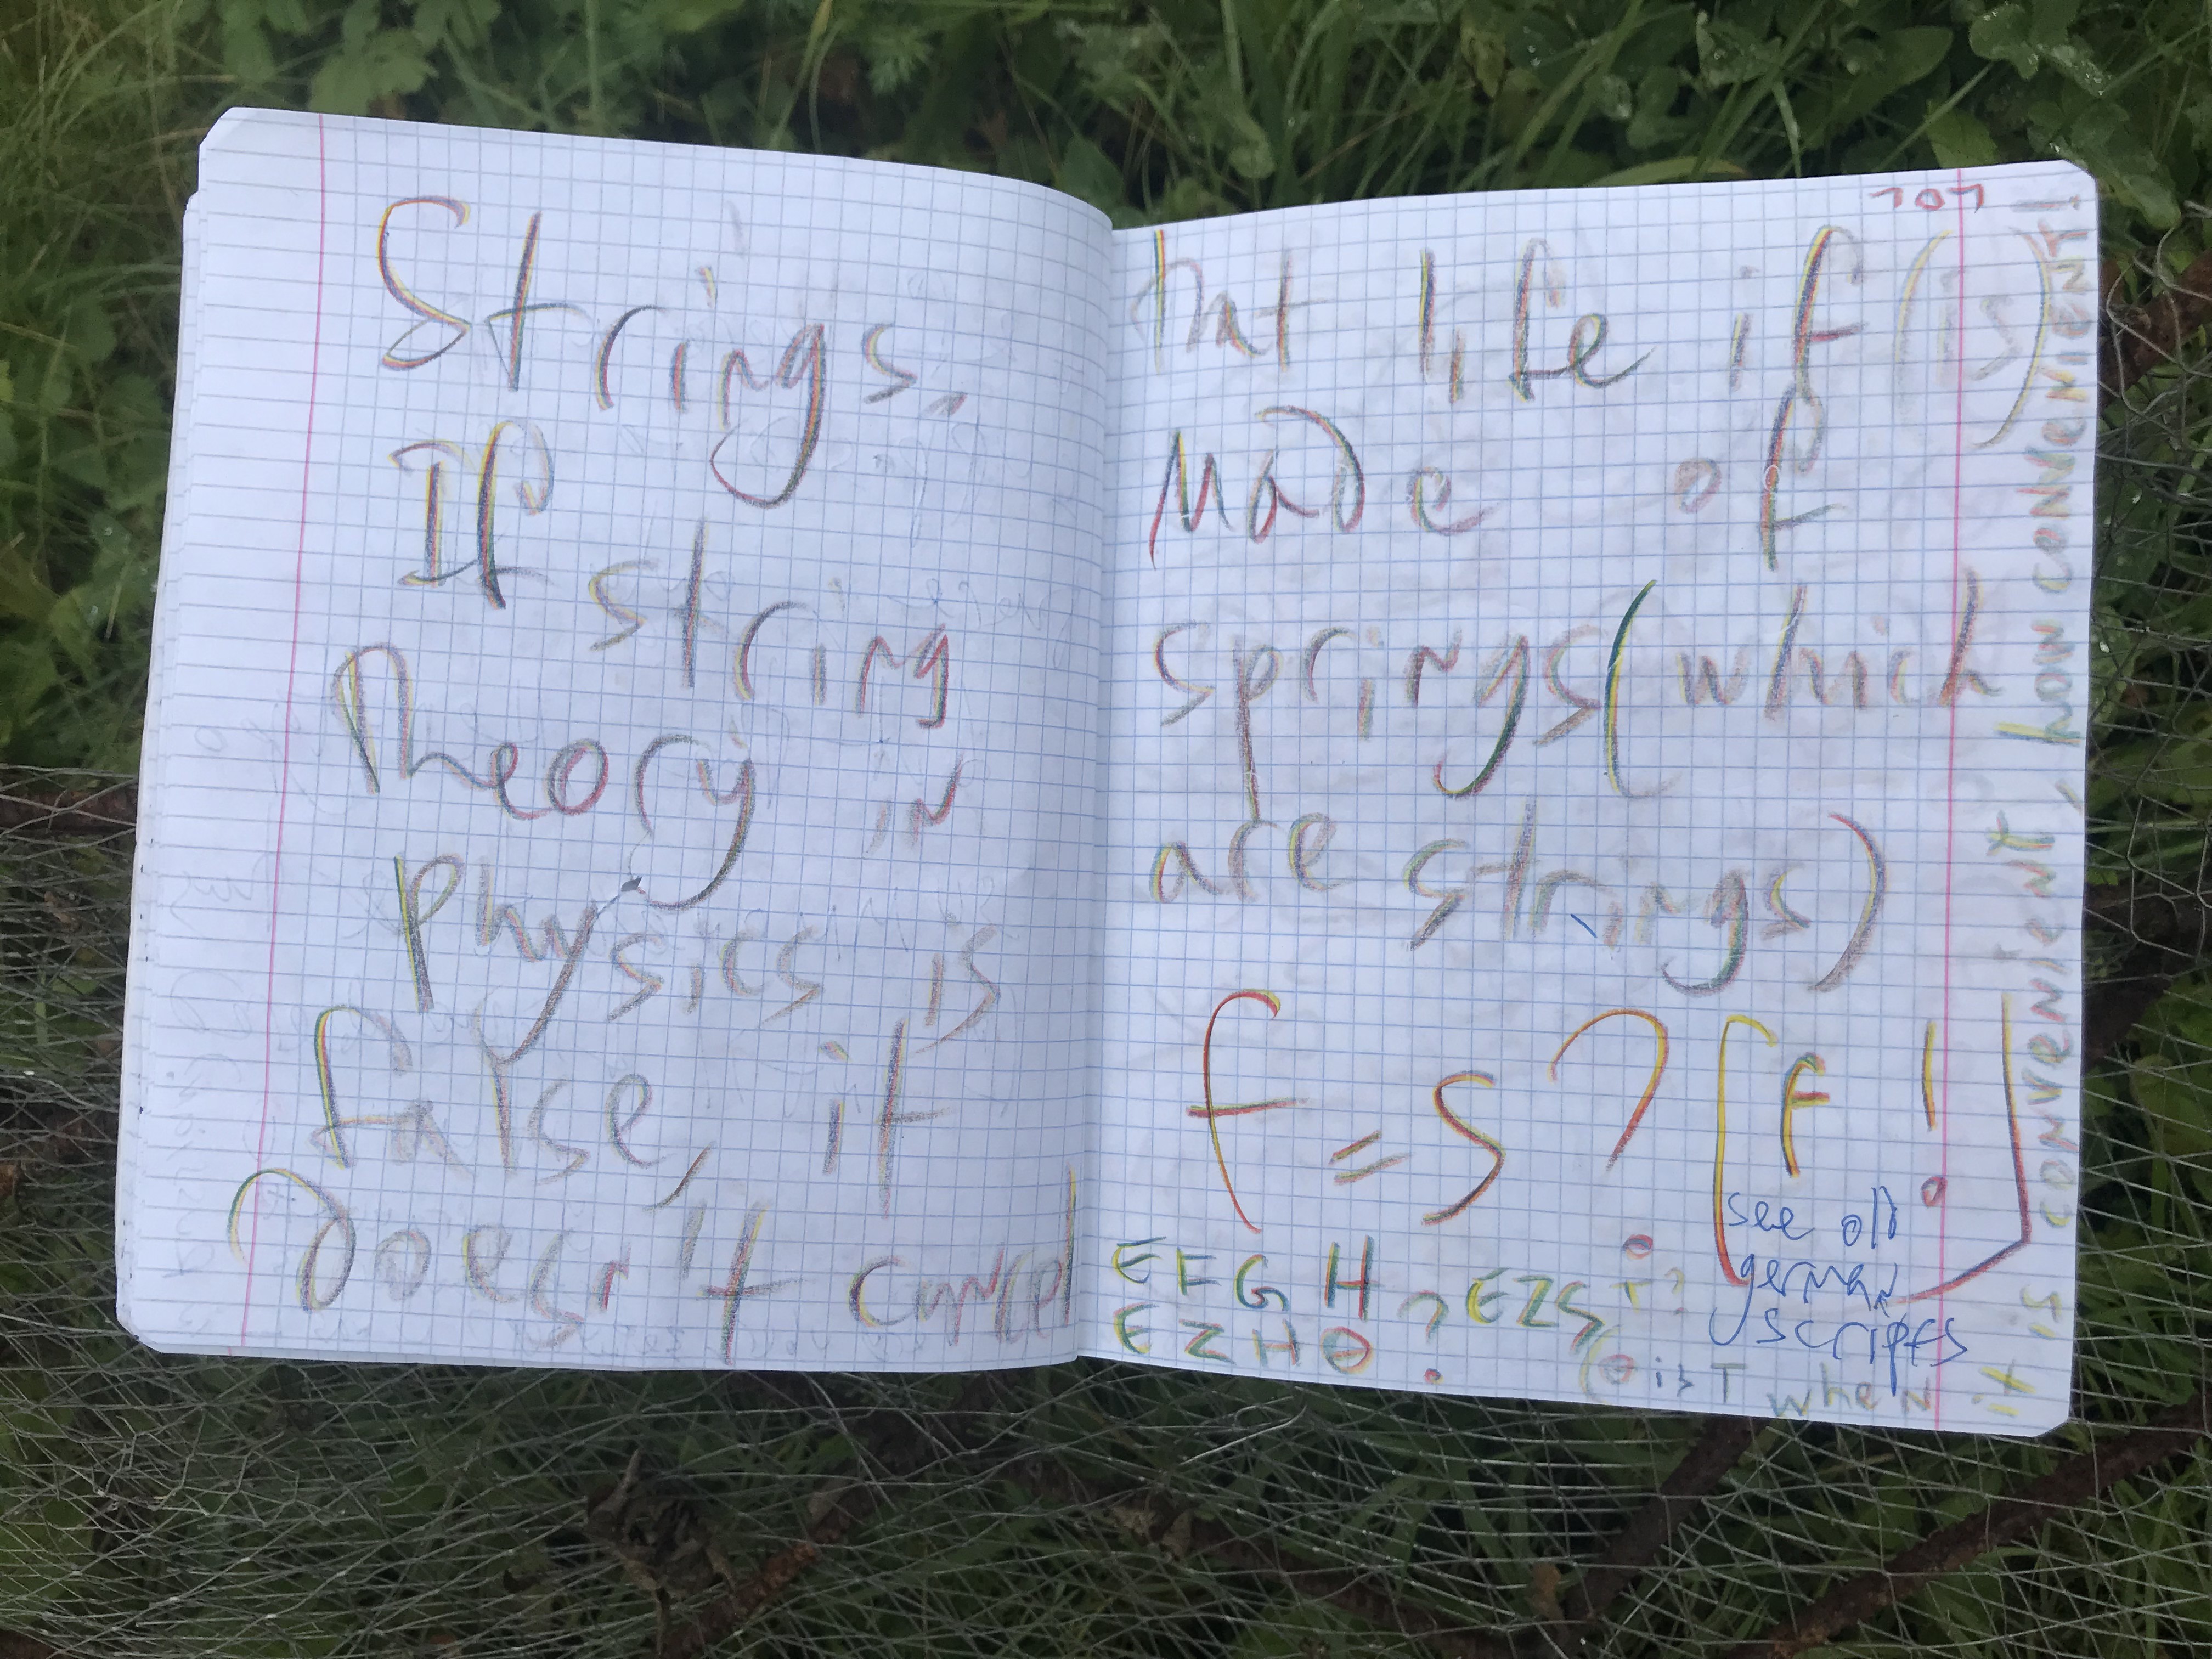 Strings.
If string
Theory in
physics is
false, it
Doesn't cancel
707
That life if (is)
Made of
springs (which
are strings)
f = s? [F!]
see old
german
scripts
EFGH
EZHΘ ? EZS T?
(Θ is T when
it is convenient, how CONVENIENT!